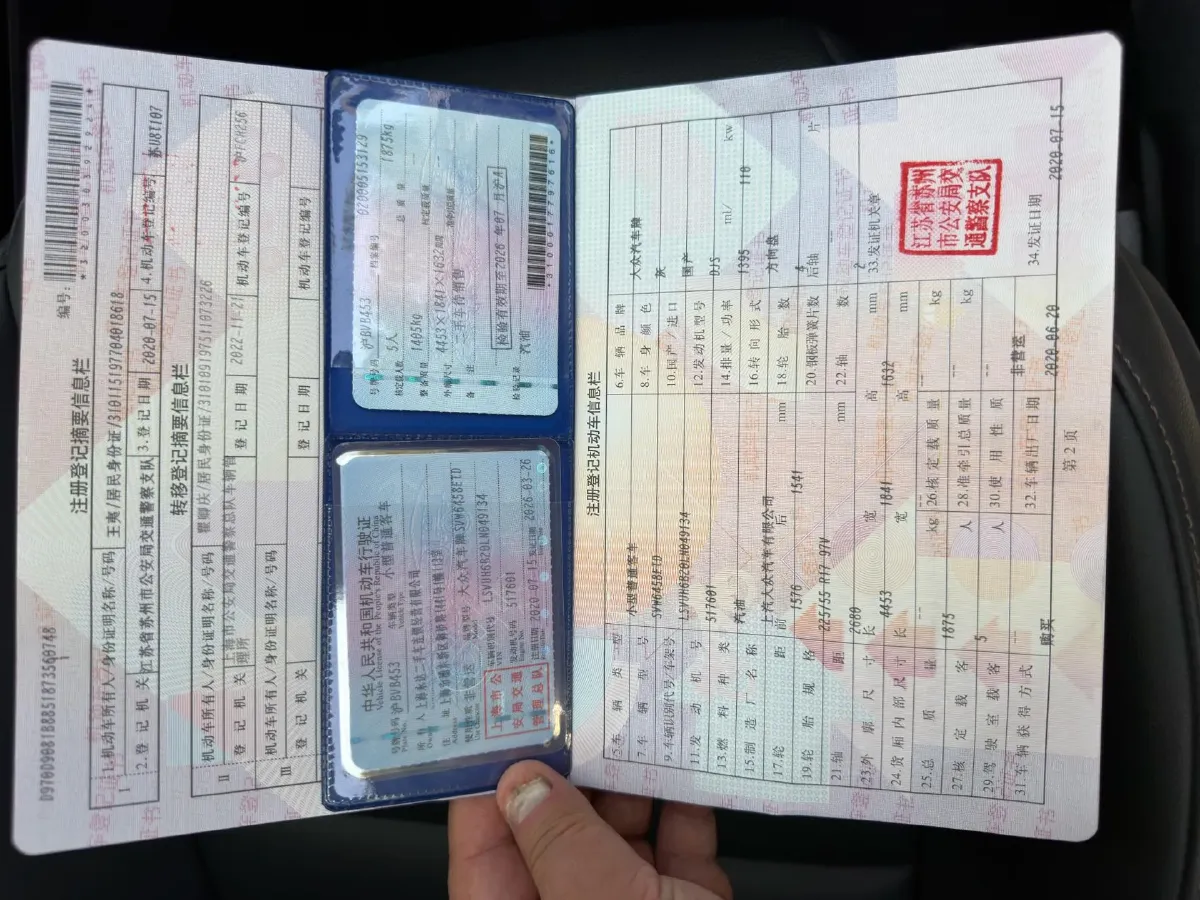 注册登记摘要信息栏
编号:
*320030392923*
D970D9081B8851873560748
1
Ⅰ
1.机动车所有人/身份证明名称/号码 王夷/居民身份证/310115197704018618
2.登记机关 江苏省苏州市公安局交通警察支队 3.登记日期 2020-07-15 4.机动车登记编号 苏U8T107
转移登记摘要信息栏
Ⅱ
机动车所有人/身份证明名称/号码 瞿卿庆/居民身份证/310109197511073226
登记机关 上海市公安局交通警察总队车辆管理所 登记日期 2022-11-21 机动车登记编号
Ⅲ
机动车所有人/身份证明名称/号码
登记机关 登记日期 机动车登记编号
中华人民共和国机动车行驶证
Vehicle License of the People's Republic of China
号牌号码 沪BVB453 车辆类型 小型普通客车
Plate No. Vehicle Type
所有人
Owner
住址
Address
使用性质 非营运 品牌型号 大众汽车牌SVW6458ETD
Use Character Model
车辆识别代号 LSVUH6B20LN049134
VIN
发动机号码 517601
Engine No.
注册日期 2020-07-15 发证日期 2026-03-26
上海市公
安局交通
警察总队
号牌号码 沪BVB453 档案编号 020005153129
核定载人数 5人 总质量 1875kg
整备质量 1405kg 核定载质量
外廓尺寸 4453×1841×1632mm 准牵引总质量
备注 二手车待销售
检验有效期至2026年07月沪A
检验记录 汽油
*3100017797616*
注册登记机动车信息栏
5.车辆类型 小型普通客车 6.车辆品牌 大众汽车牌
7.车辆型号 SVW6458ETD 8.车身颜色 灰
9.车辆识别代号/车架号 LSVUH6B20LN049134 10.国产/进口 国产
11.发动机号 517601 12.发动机型号 DJS
13.燃料种类 汽油 14.排量/功率 1395 ml/ 110 kw
15.制造厂名称 上汽大众汽车有限公司 16.转向形式 方向盘
17.轮距 前 1576 后 1541 mm 18.轮胎数 4
19.轮胎规格 225/55 R17 97V 20.钢板弹簧片数 后轴 -- 片
21.轴距 2680 mm 22.轴数 2
23.外廓尺寸 长 4453 宽 1841 高 1632 mm 33.发证机关章
24.货厢内部尺寸 长 -- 宽 -- 高 -- mm
25.总质量 1875 kg 26.核定载质量 -- kg
27.核定载客 5 人 28.准牵引总质量 -- kg
29.驾驶室载客 -- 人 30.使用性质 非营运
31.车辆获得方式 购买 32.车辆出厂日期 2020-06-20 34.发证日期 2020-07-15
江苏省苏州
市公安局交
通警察支队
第 2 页